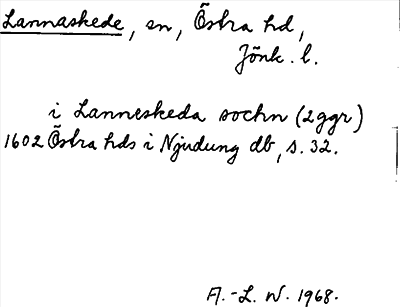 Lannaskede, sn, Östra hd,
Jönk. l.
i Lanneskeda sochn (2ggr)
1602 Östra hds i Njudung db, s. 32.
A.-L. W. 1968.